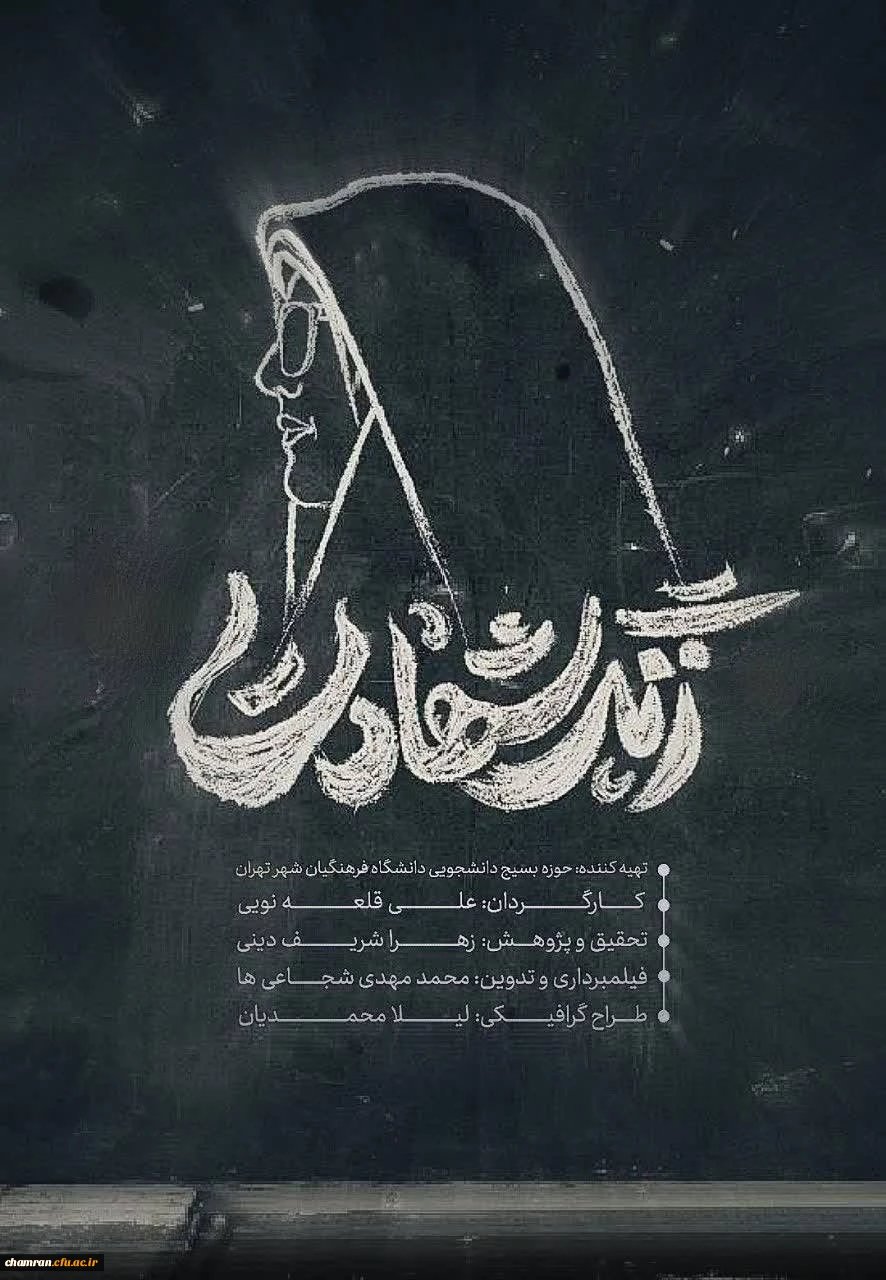 زنگ شهادت
تهیه کننده: حوزه بسیج دانشجویی دانشگاه فرهنگیان شهر تهران
کارگردان: علی قلعه نویی
تحقیق و پژوهش: زهرا شریف دینی
فیلمبرداری و تدوین: محمد مهدی شجاعی ها
طراح گرافیکی: لیلا محمدیان
chamran.cfu.ac.ir